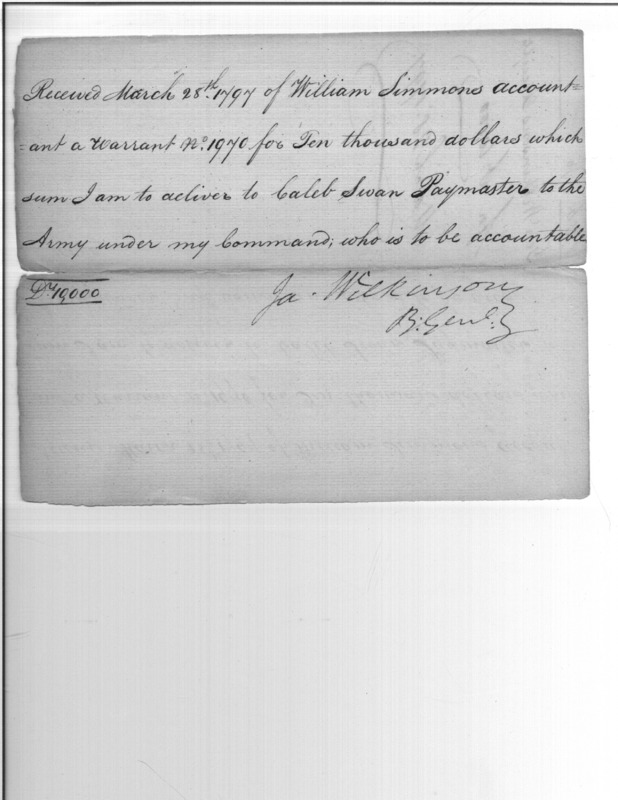 Received March 28th. 1797 of William Simmons account=
=ant a Warrant No. 1970. for Ten thousand dollars which
sum I am to deliver to Caleb Swan Paymaster to the
Army under my Command; who is to be accountable
Drs. 10,000
Ja. Wilkinson
B: Genl.